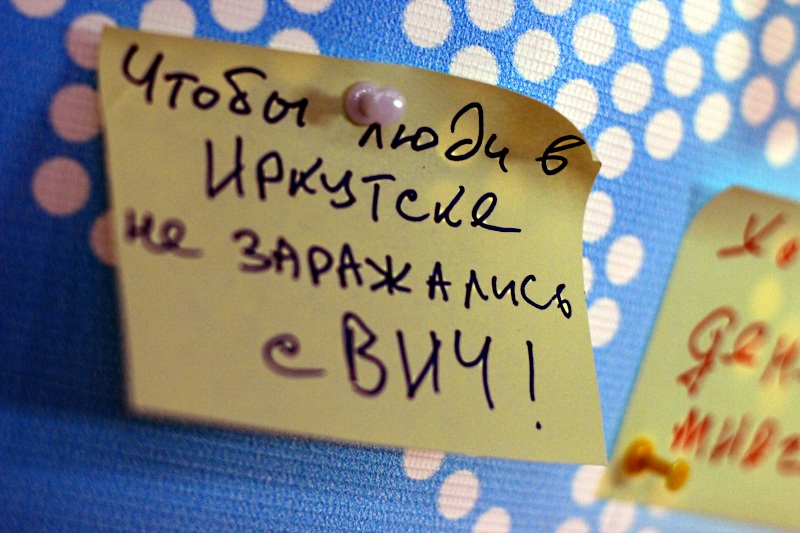 Чтобы люди в
Иркутске
не заражались
с ВИЧ!